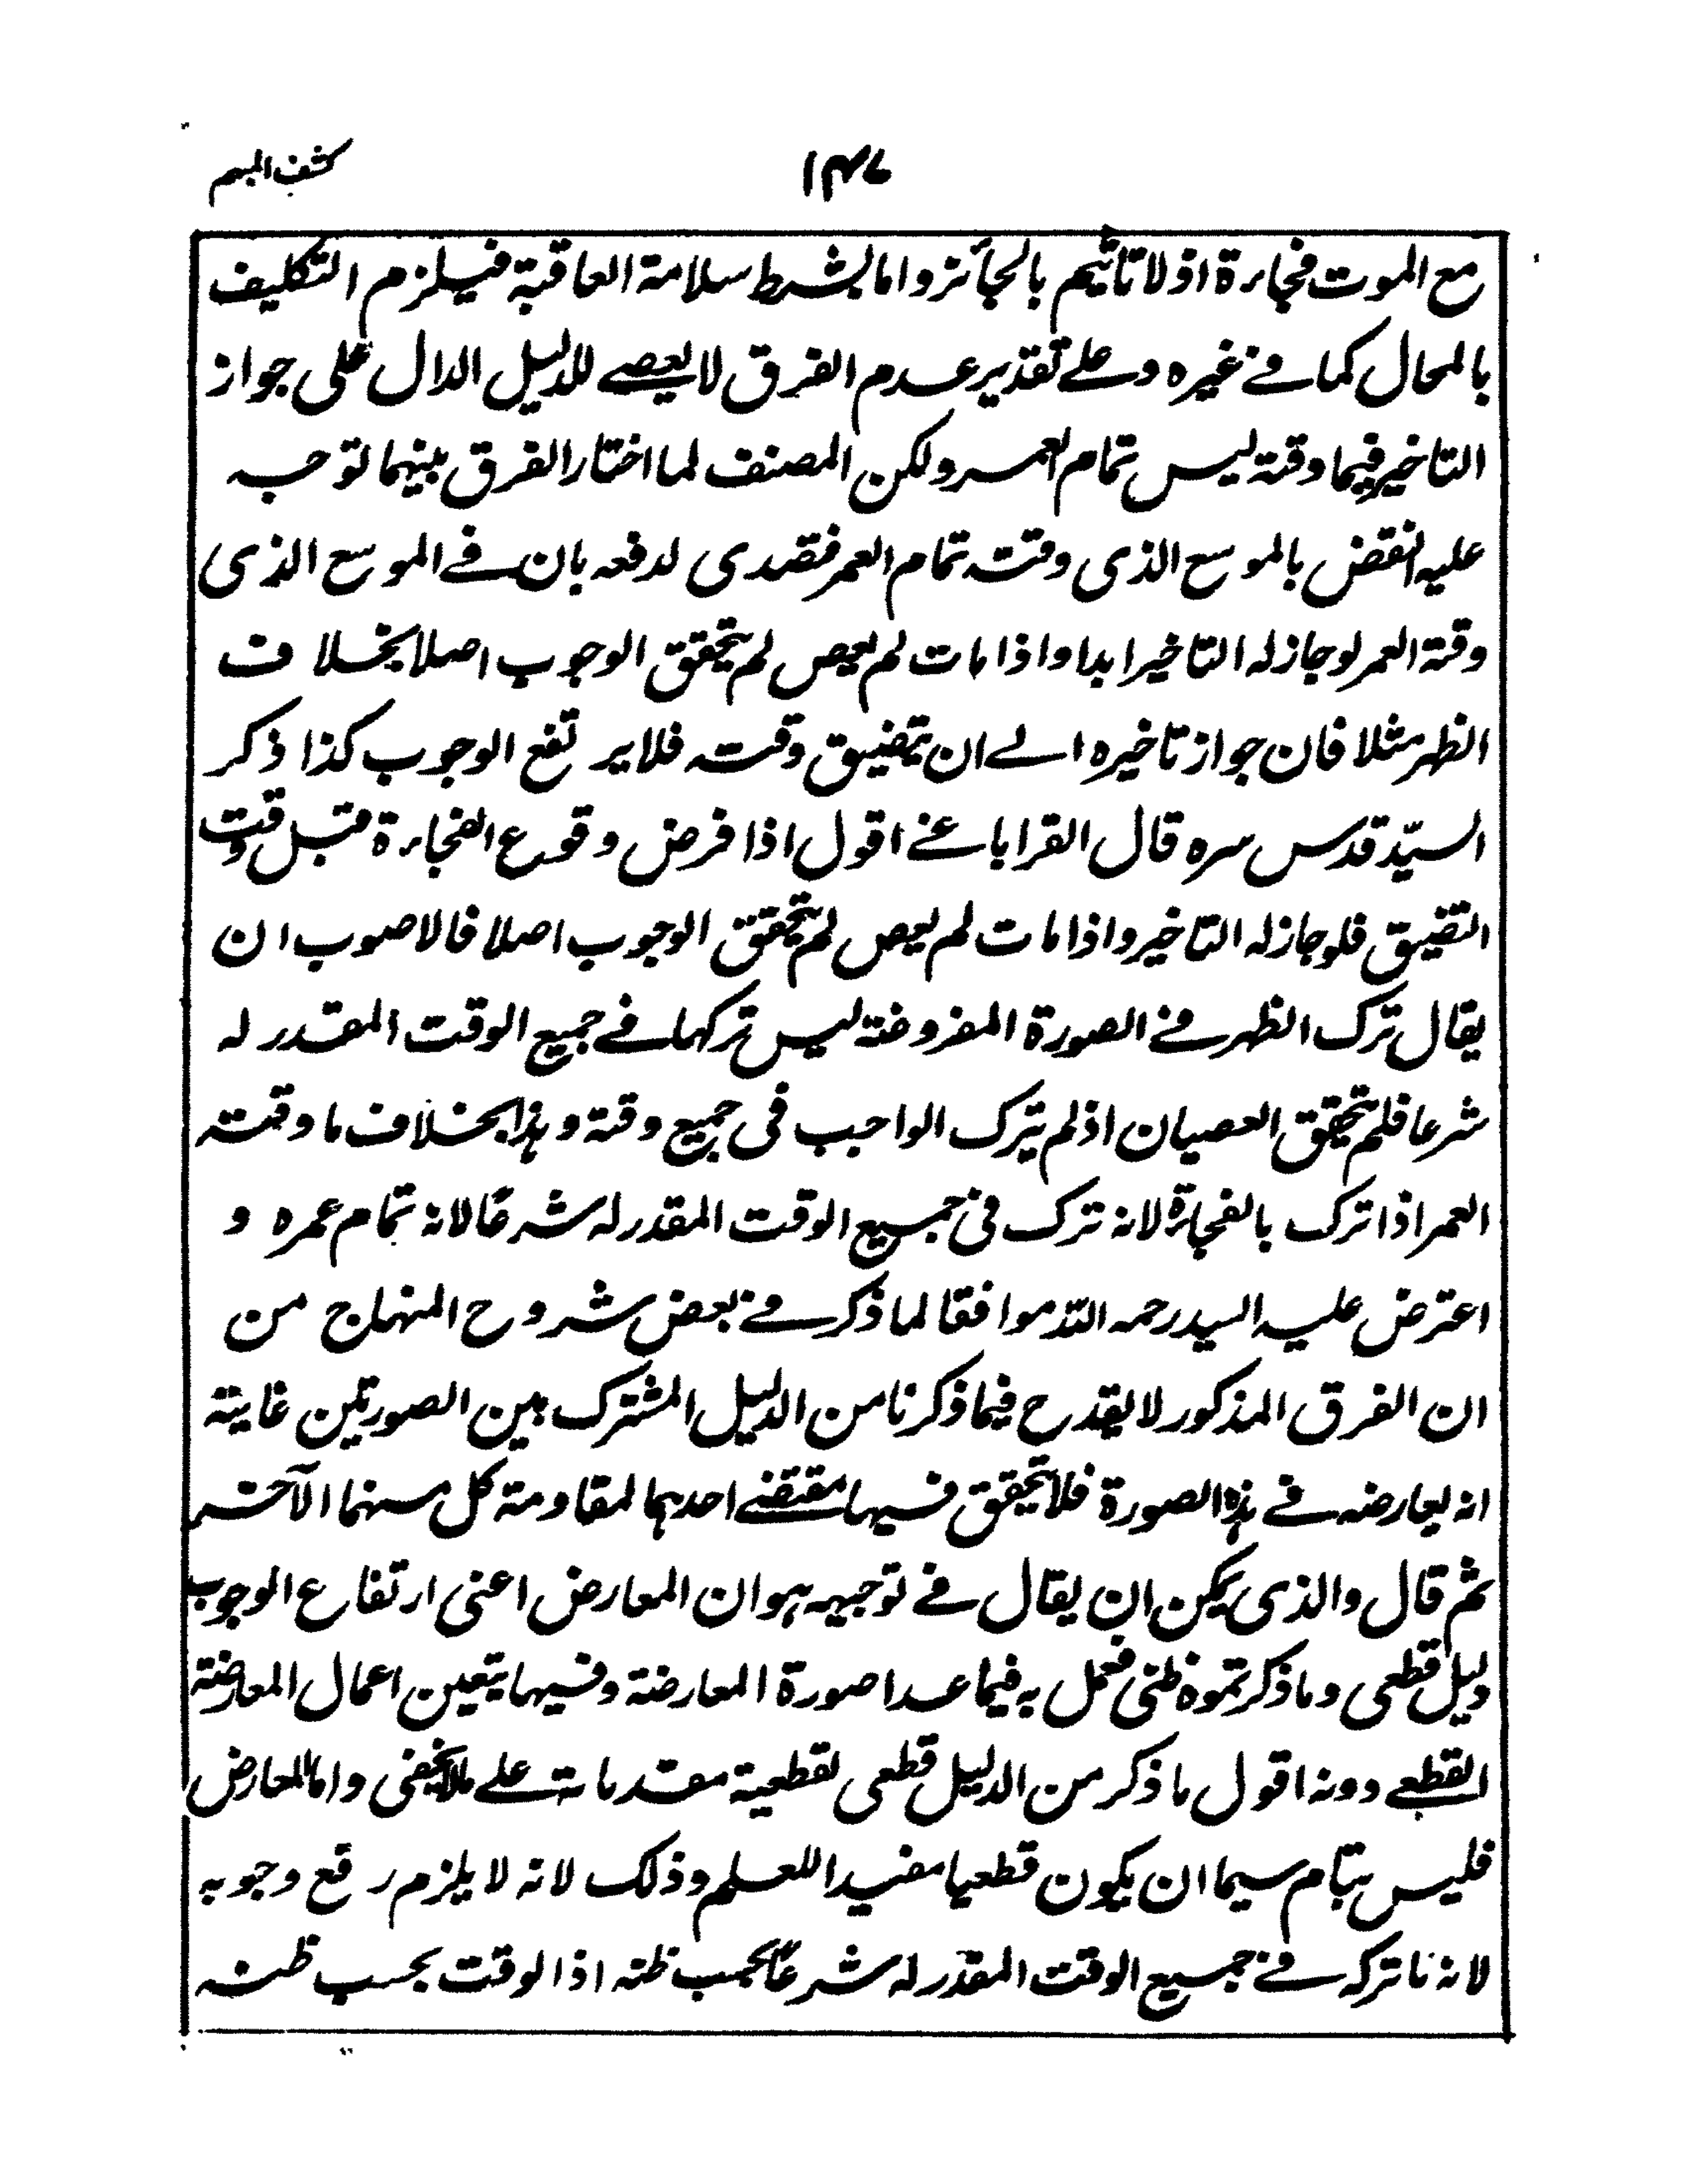 كشف المبهم ١٤٧
مع الموت فجاءرة اذ لا تاثيم بالجائز واما بشرط سلامة العاقبة فيلزم التكليف
بالمحال كما في غيره وعلى تقدير عدم الفرق لا يعصے للدليل الدال على جواز
التاخير فيما وقته ليس تمام العمر ولكن المصنف لما اختار الفرق بينهما توجه
عليه النقض بالموسع الذى وقته تمام العمر فتصدى لدفعه بان في الموسع الذى
وقته العمر لو جاز له التاخير ابدا واذا مات لم يعص لم يتحقق الوجوب اصلا بخلاف
الظهر مثلا فان جواز تاخيره الے ان تيضيق وقته فلا يرتفع الوجوب كذا ذكر
السيّد قدس سره قال القراباغے اقول اذا فرض وقوع الفجاءرة قبل وقت
التضيق فلو جاز له التاخير واذا مات لم يعص لم يتحقق الوجوب اصلا فالاصوب ان
يقال ترك الظهر في الصورة المفروضة ليس تركها في جميع الوقت المقدر له
شرعا فلم يتحقق العصيان اذ لم يترك الواجب في جميع وقته وهذا بخلاف ما وقته
العمر اذا ترك بالفجاءرة لانه ترك في جميع الوقت المقدر له شرعًا لانه تمام عمره و
اعترض عليه السيد رحمه اللّه موافقا لما ذكر في بعض شروح المنهاج من
ان الفرق المذكور لا يقدح فيما ذكرنا من الدليل المشترك بين الصورتين غايته
انه يعارضه في هذه الصورة فلا يتحقق فيها مقتضے احدهما لمقاومة كل منهما الآخر
ثم قال والذى يمكن ان يقال في توجيهه هو ان المعارض اعنى ارتفاع الوجوب
دليل قطعى وما ذكرتموه ظنى فعمل به فيما عدا صورة المعارضة وفيها يتعين اعمال المعارضة
القطعے دونه اقول ما ذكر من الدليل قطعى لقطعية مقدماته على ما لا يخفى واما المعارض
فليس بتام سيما ان يكون قطعيا مفيدا للعلم وذلك لانه لا يلزم رفع وجوبه
لانه ما تركه في جميع الوقت المقدر له شرعًا بحسب ظنه اذ الوقت بحسب ظنه